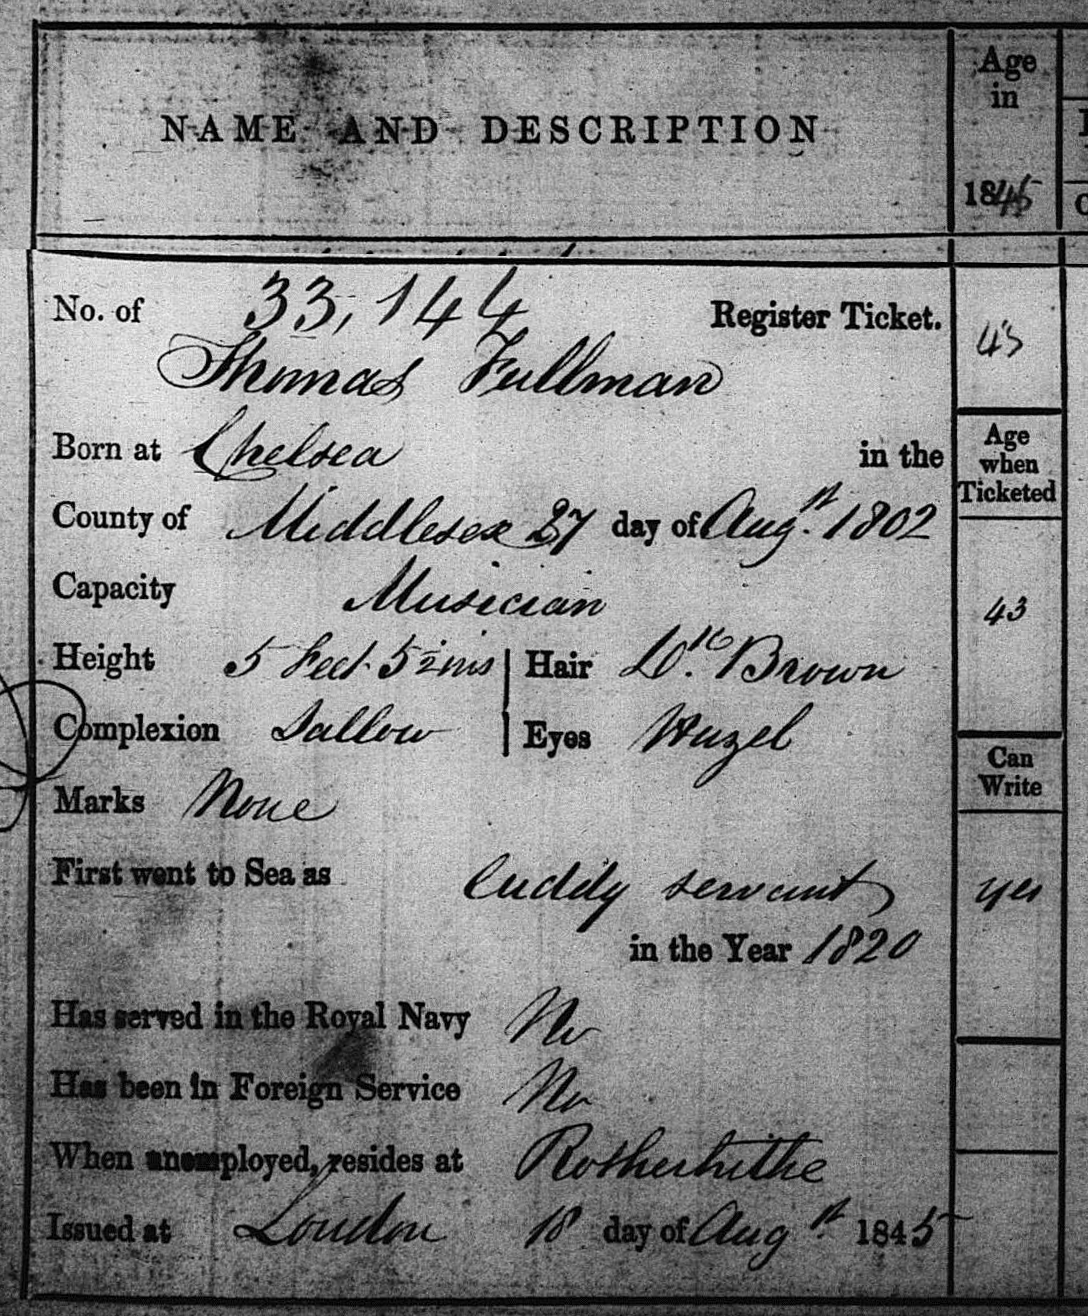 NAME AND DESCRIPTION
Age
in
1845
No. of 33,144 Register Ticket.
43
Thomas Fullman
Born at Chelsea in the
Age
when
Ticketed
County of Middlesex 27 day of Augst. 1802
Capacity Musician
43
Height 5 feet 5½ins Hair Dk. Brown
Complexion Sallow Eyes Hazel
Can
Write
Marks None
First went to Sea as Cuddy servant
yes
in the Year 1820
Has served in the Royal Navy No
Has been in Foreign Service No
When unemployed, resides at Rotherhithe
Issued at London 18 day of Augst. 1845